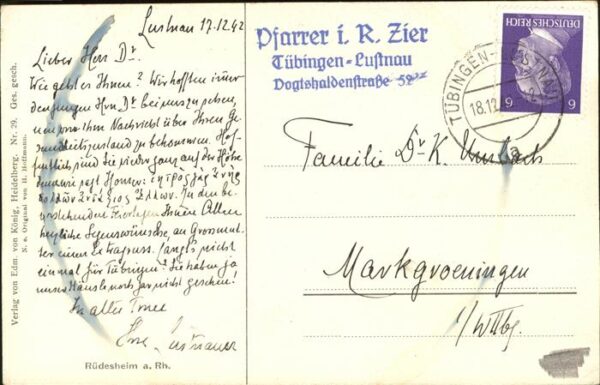 Lustnau 17.12.42
Lieber Herr Dr.
Wie geht es Ihnen? Wir hofften immer
den jungen Herrn Dr. bei uns zu sehen,
um von Ihm Nachricht über Ihren Ge
sundheitszustand zu bekommen. Hof-
fentlich sind Sie wieder ganz auf der Höhe
denn wie sagt Homer: ἰητρὸς γὰρ ἀνὴρ
πολλῶν ἀντάξιος ἄλλων. Zu den be
vorstehenden Feiertagen Ihnen Allen
herzliche Segenswünsche, der Grossmut-
ter einen Extragruss. Langts nicht
einmal für Tübingen? Sie haben ja
unser Häusle noch gar nicht gesehen!
In alter Treue
Ihre Lustnauer
Rüdesheim a. Rh.
Verlag von Edm. von König, Heidelberg. Nr. 29. Ges. gesch.
N. e. Original von H. Hoffmann.
Pfarrer i. R. Zier
Tübingen-Lustnau
Vogtshaldenstraße 52
DEUTSCHES REICH
6 6
TÜBINGEN-LUSTNAU
18.12
a
Familie Dr. K.
Markgroeningen
i/Wttbg.